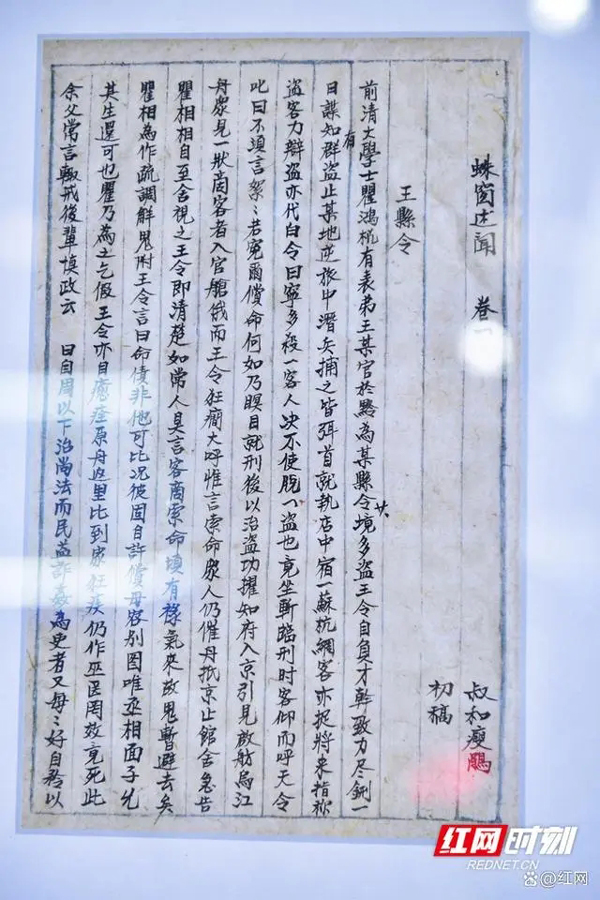 蛛窗述聞 卷一
叔和瘦鵰
初稿
王縣令
前清大學士瞿鴻機有表弟王某官於黔為某縣令境多盜王令自負才幹致力尽鋤一
日諜知群盜止某地逆旅中潛矢捕之皆弭首就執店中宿一蘇杭綢客亦捉將來指称
盜客力辯盜亦代白令曰寧多殺一客人决不使脫一盜也竟坐斬臨刑时客仰而呼天令
叱曰不須言絮〻若寃爾償命何如乃瞑目就刑後以治盜功擢知府入京引見啟舫烏江
舟眾見一狀商客者入官艙俄而王令狂癎大呼惟言索命眾人仍催舟抵京止館舍急告
瞿相相自至舍視之王令即清楚如常人具言客商索命頃有祿氣來故鬼暫避去矣
瞿相為作疏調解鬼附王令言曰命債非他可比況彼固自許償毋容别圖唯丞相面子允
其生還可也瞿乃為之乞假王令亦自癒痊原舟返里比到家狂疾仍作巫医罔效竟死此
余父常言輙戒後輩慎政云 曰自周以下治尚法而民益詐姦為吏者又每〻好自矜以
红网时刻
REDNET.CN
百@红网